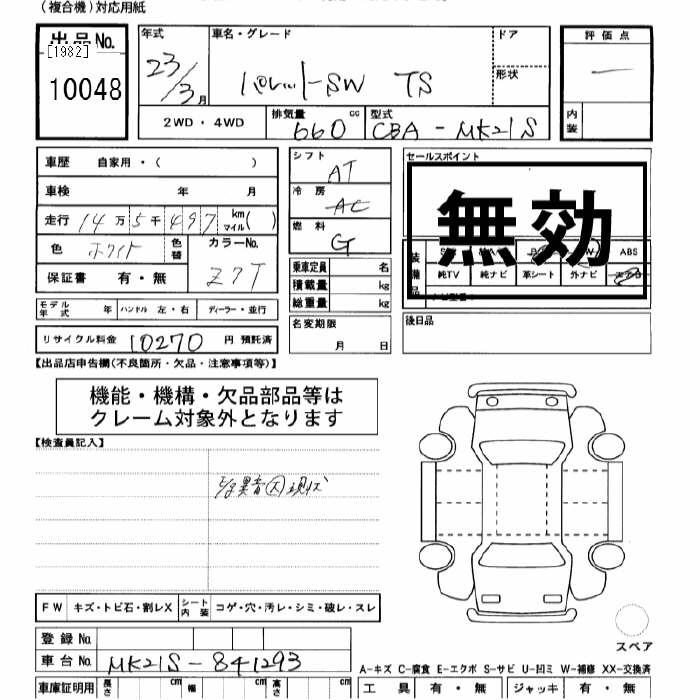 (複合機)対応用紙
出品No.
[1982]
10048
年式
23/3月
車名・グレード
パレットSW TS
ドア
形状
評価点
内装
2WD・4WD
排気量 660 cc
型式 CBA-MK21S
車歴 自家用・( )
車検 年 月
走行 14万5千497 km マイル( )
色 ホワイト 色替
カラーNo. Z7T
保証書 有・無
モデル年式 年 ハンドル 左・右 ディーラー・並行
リサイクル料金 10270 円 預託済
シフト AT
冷房 AC
燃料 G
乗車定員 名
積載量 kg
総重量 kg
名変期限
月 日
セールスポイント
無効
ABS
純TV 純ナビ 革シート 外ナビ
後日品
【出品店申告欄(不良箇所・欠品・注意事項等)】
機能・機構・欠品部品等は
クレーム対象外となります
【検査員記入】
異音 現状
FW キズ・トビ石・割レX シート内装 コゲ・穴・汚レ・シミ・破レ・スレ
スペア
登録No.
車台No. MK21S-841293
A-キズ C-腐食 E-エクボ S-サビ U-凹ミ W-補修 XX-交換済
車庫証明用 長さ cm 幅 cm 高さ cm
工具 有・無 ジャッキ 有・無